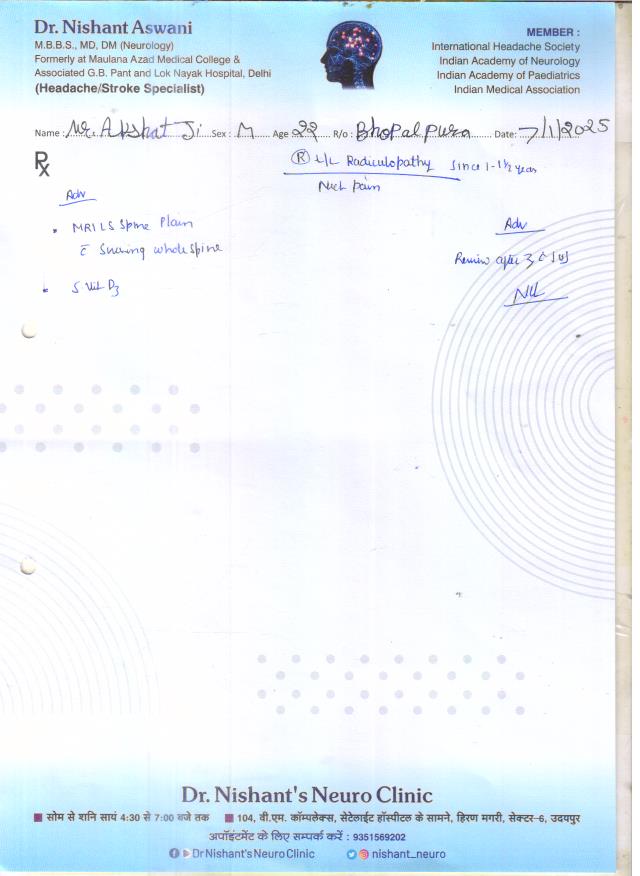 Dr. Nishant Aswani
M.B.B.S., MD, DM (Neurology)
Formerly at Maulana Azad Medical College &
Associated G.B. Pant and Lok Nayak Hospital, Delhi
(Headache/Stroke Specialist)
MEMBER :
International Headache Society
Indian Academy of Neurology
Indian Academy of Paediatrics
Indian Medical Association
Name : Mr. Akshat Ji Sex : M Age 22 R/o : Bhopalpura Date: 7/1/2025
Rx
(R) L/L Radiculopathy since 1-1½ year
Neck pain
Adv
MRI LS Spine Plain
c̄ Screening whole spine
S Vit D3
Adv
Review after
Dr. Nishant's Neuro Clinic
सोम से शनि सायं 4:30 से 7:00 बजे तक 104, वी.एम. कॉम्पलेक्स, सेटेलाईट हॉस्पीटल के सामने, हिरण मगरी, सेक्टर-6, उदयपुर
अपॉइंटमेंट के लिए सम्पर्क करें : 9351569202
Dr Nishant's Neuro Clinic nishant_neuro